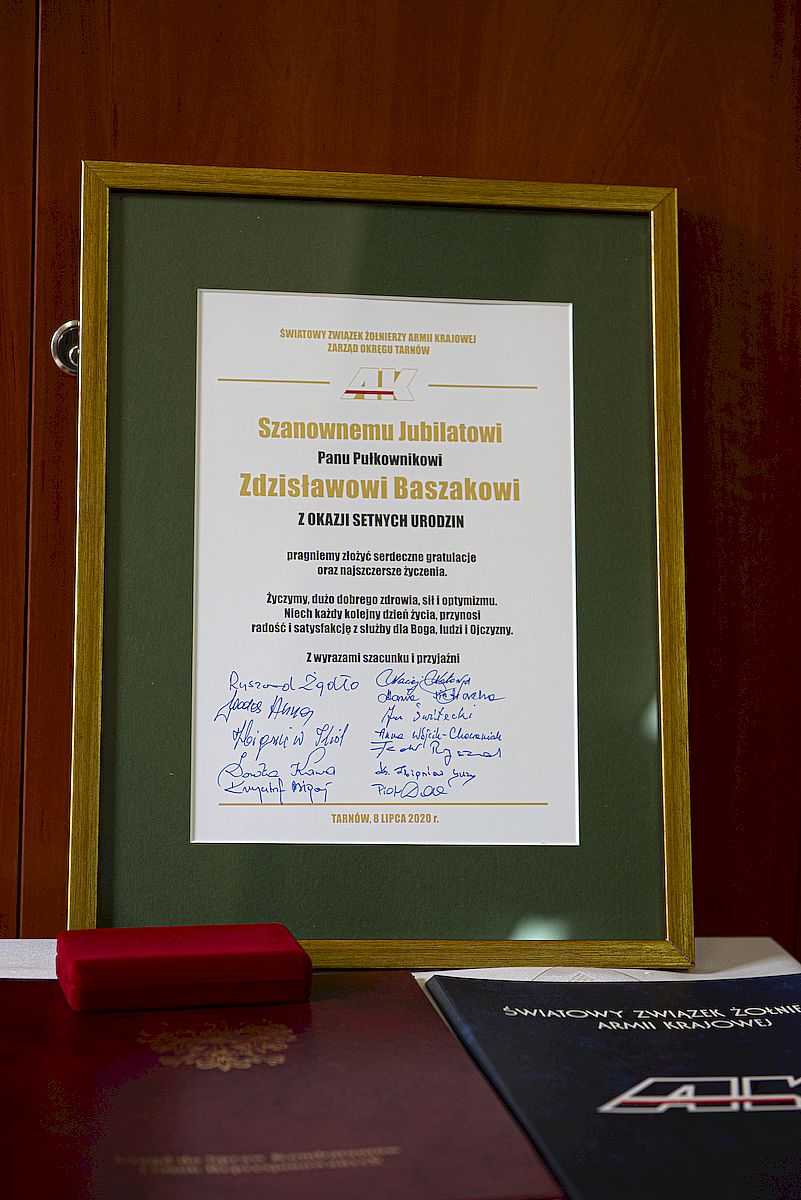 ŚWIATOWY ZWIĄZEK ŻOŁNIERZY ARMII KRAJOWEJ
ZARZĄD OKRĘGU TARNÓW
AK
Szanownemu Jubilatowi
Panu Pułkownikowi
Zdzisławowi Baszakowi
Z OKAZJI SETNYCH URODZIN
pragniemy złożyć serdeczne gratulacje
oraz najszczersze życzenia.
Życzymy, dużo dobrego zdrowia, sił i optymizmu.
Niech każdy kolejny dzień życia, przynosi
radość i satysfakcję z służby dla Boga, ludzi i Ojczyzny.
Z wyrazami szacunku i przyjaźni
Ryszard Żądło
Zbigniew
Kawa
Krzysztof
Maciej
Jan Świtecki
Anna Wójcik-
Ryszard
dr Zbigniew
Piotr
TARNÓW, 8 LIPCA 2020 r.
ŚWIATOWY ZWIĄZEK ŻOŁNIE
ARMII KRAJOWEJ
AK
Urząd do Spraw Kombatantów
i Osób Represjonowanych